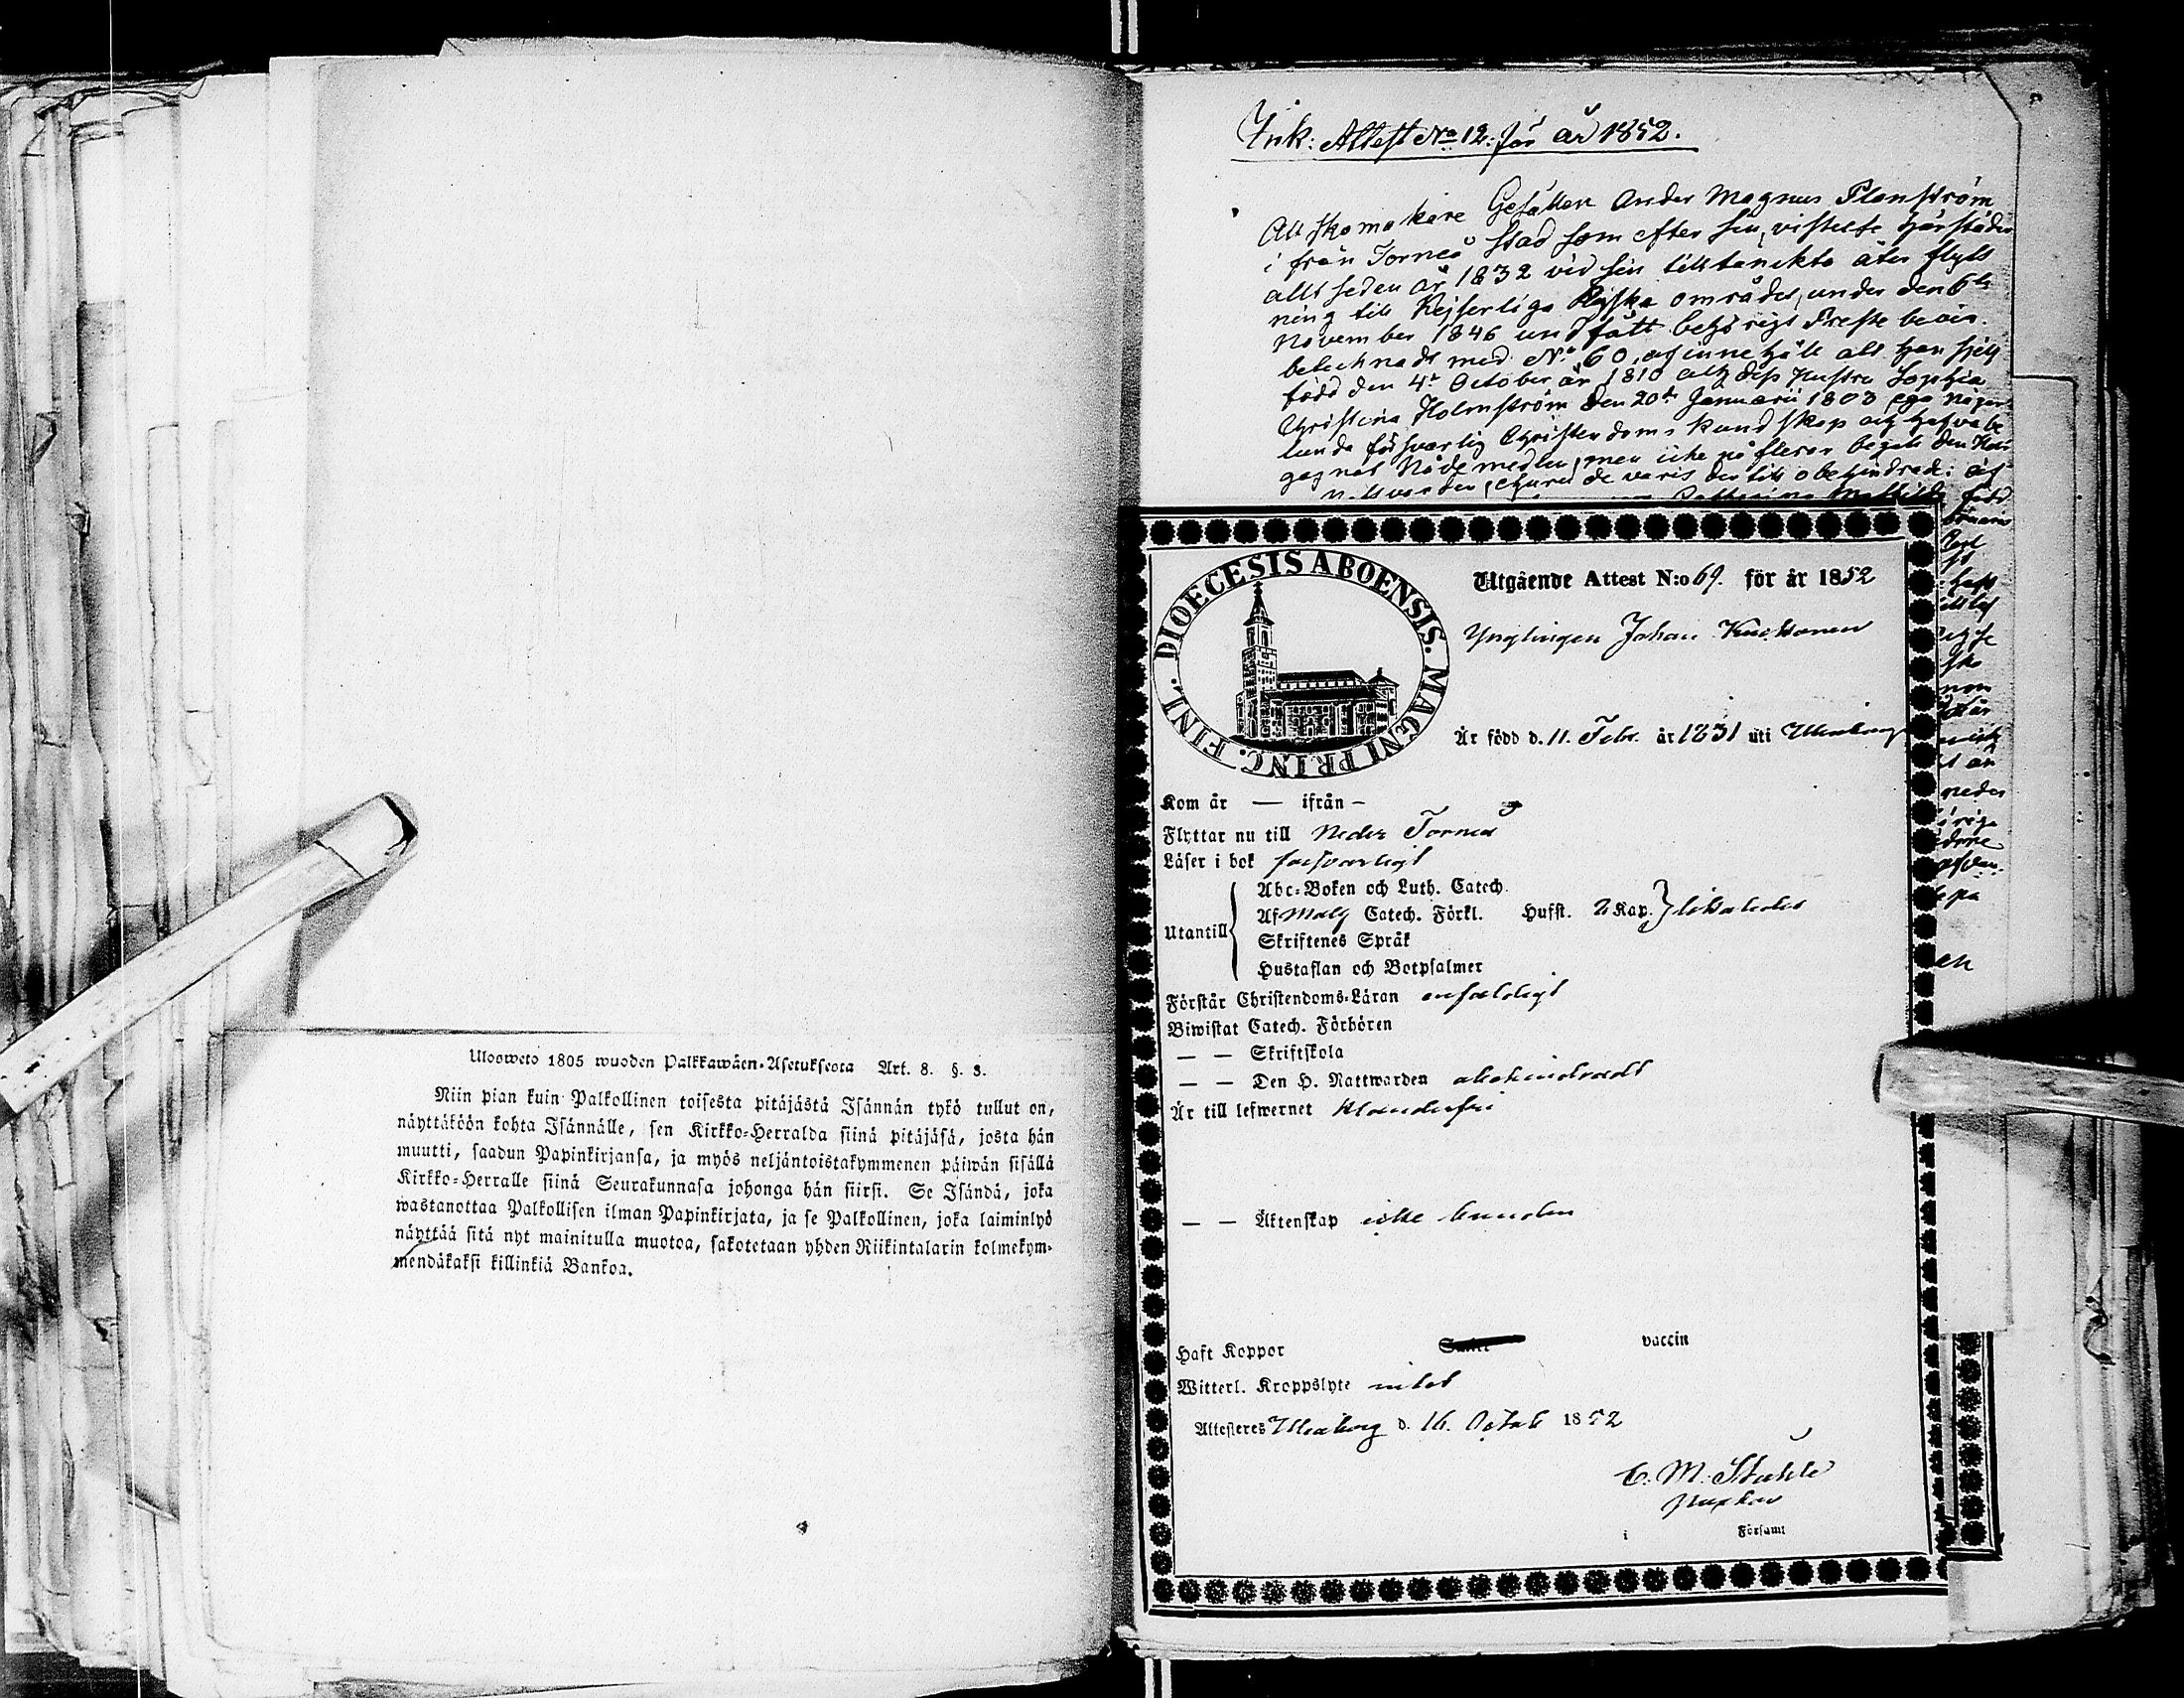 Ulosweto 1805 wuoden Palkkawäen-Asetuksesta Art. 8. §. 3.
Niin pian kuin Palkollinen toisesta pitäjästä Isännän tykö tullut on,
näyttäköön kohta Isännälle, sen Kirkko-Herralda siinä pitäjäsä, josta hän
muutti, saadun Papinkirjansa, ja myös neljäntoistakymmenen päiwän sisällä
Kirkko-Herralle siinä Seurakunnasa johonga hän siirsi. Se Isändä, joka
wastanottaa Palkollisen ilman Papinkirjata, ja se Palkollinen, joka laiminlyö
näyttää sitä nyt mainitulla muotoa, sakotetaan yhden Riikintalarin kolmekym-
mendäkaksi killinkiä Bankoa.
Ink: Attest No 12. för år 1852.
Att skomakare Gesällen Ander Magnus Planström
i från Torneå stad som efter sin vistelse härstädes
allt sedan år 1832 vid sin tilltänckta åter flytt
ning till Kejserliga Ryska området, under den 6te
November 1846 undfått behörigt Preste bevis.
betecknadt med No 60, af innehåll att han sjelf
född den 4de October år 1810 och dess Hustru Sophia
Christina Holmström den 20de Januarii 1803 ega någor
lunda försvarlig Christendoms kundskap och hafva be
gagnat Nådemedlen, men icke på flere år begått den Hel:
nattvarden, ehuru de varit der till obehindrade: att
Mathilda född
DIOECESIS ABOENSIS. MAGNI PRINC. FINL.
Utgående Attest N:o 69. för år 1852
Ynglingen Johan
Är född d. 11. Febr. år 1831 uti Uleåborg
Kom år — ifrån –
Flyttar nu till Neder Torneå
Läser i bok försvarligt
Utantill
Abc-Boken och Luth. Catech.
Af Catech. Förkl. Husst. 2 Kap. likaledes
Skriftenes Språk
Hustaflan och Botpsalmer
Förstår Christendoms-Läran enfaldigt
Biwistat Catech. Förhören
— — Skriftskola
— — Den H. Nattwarden obehindradt
Är till lefwernet klanderfri
— — Äktenskap icke bunden
Haft Koppor vaccin
Witterl. Kroppslyte intet
Attesteres Uleåborg d. 16. Octob 1852
C. M. Ståhle
i Församl